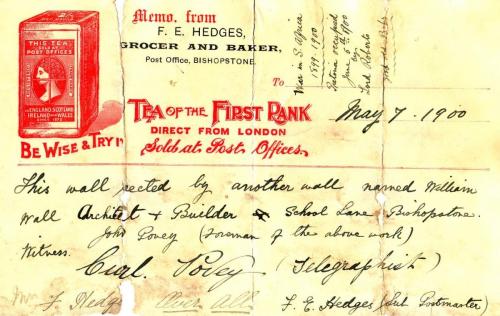 Memo. from
F. E. HEDGES,
GROCER AND BAKER,
Post Office, BISHOPSTONE.
To
War in S. Africa
1899-1900
Pretoria occupied
June 5th 1900
by
Lord Roberts
THIS TEA
SOLD AT
POST OFFICES
IN ENGLAND, SCOTLAND
IRELAND AND WALES
SINCE 1872
BE WISE & TRY IT
TEA OF THE FIRST RANK
DIRECT FROM LONDON
Sold at Post Offices.
May 7. 1900
This wall rected by another wall named William
Wall Architect & Builder School Lane Bishopstone.
John Povey (Foreman of the above work)
Witness.
Povey (Telegraphist)
F. Hedges
F. E. Hedges (Sub Postmaster)